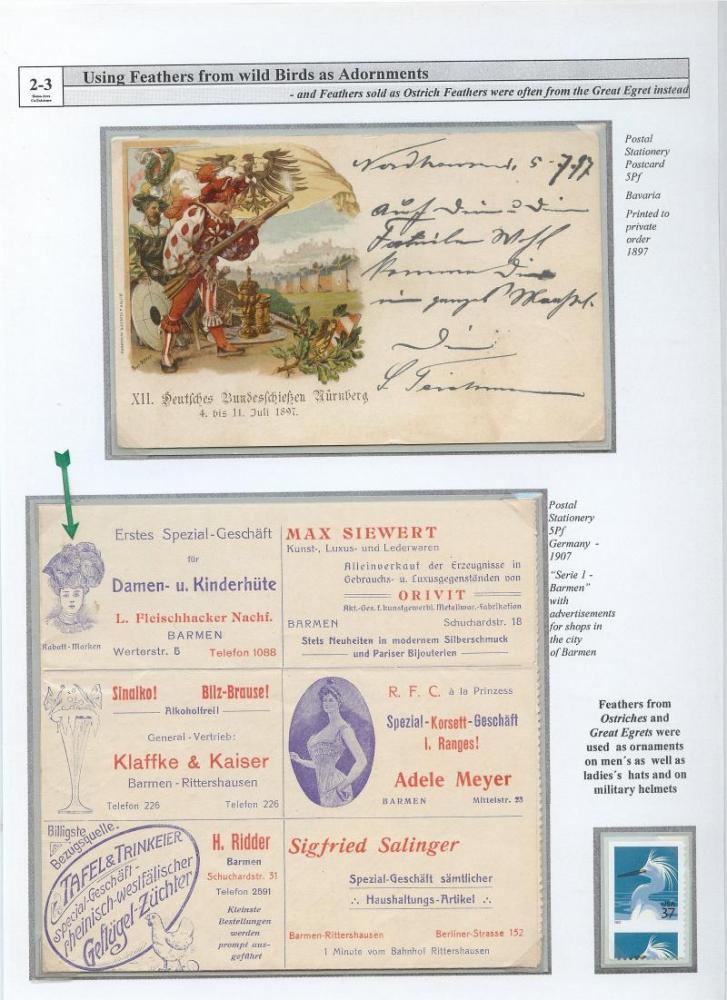 2-3
Using Feathers from wild Birds as Adornments
- and Feathers sold as Ostrich Feathers were often from the Great Egret instead
Nordhausen, 5-7.97
XII. Deutsches Bundesschießen Nürnberg
4. bis 11. Juli 1897.
Postal
Stationery
Postcard
5Pf
Bavaria
Printed to
private
order
1897
Erstes Spezial-Geschäft
für
Damen- u. Kinderhüte
L. Fleischhacker Nachf.
BARMEN
Werterstr. 5 Telefon 1088
Rabatt-Marken
MAX SIEWERT
Kunst-, Luxus- und Lederwaren
Alleinverkauf der Erzeugnisse in
Gebrauchs- u. Luxusgegenständen von
ORIVIT
Akt.-Ges. f. kunstgewerbl. Metallwar.-Fabrikation
BARMEN Schuchardstr. 18
Stets Neuheiten in modernem Silberschmuck
und Pariser Bijouterien
Sinalko! Bilz-Brause!
Alkoholfrei!
General-Vertrieb:
Klaffke & Kaiser
Barmen-Rittershausen
Telefon 226 Telefon 226
R. F. C. à la Prinzess
Spezial-Korsett-Geschäft
I. Ranges!
Adele Meyer
BARMEN Mittelstr. 23
Billigste
Bezugsquelle.
TAFEL & TRINKEIER
Special-Geschäft-
rheinisch-westfälischer
Geflügel-Züchter
H. Ridder
Barmen
Schuchardstr. 31
Telefon 2591
Kleinste
Bestellungen
werden
prompt aus-
geführt
Sigfried Salinger
Spezial-Geschäft sämtlicher
∴ Haushaltungs-Artikel ∴
Barmen-Rittershausen Berliner-Strasse 152
1 Minute vom Bahnhof Rittershausen
Postal
Stationery
5Pf
Germany -
1907
"Serie 1 -
Barmen"
with
advertisements
for shops in
the city
of Barmen
Feathers from
Ostriches and
Great Egrets were
used as ornaments
on men´s as well as
ladies´s hats and on
military helmets
USA
37